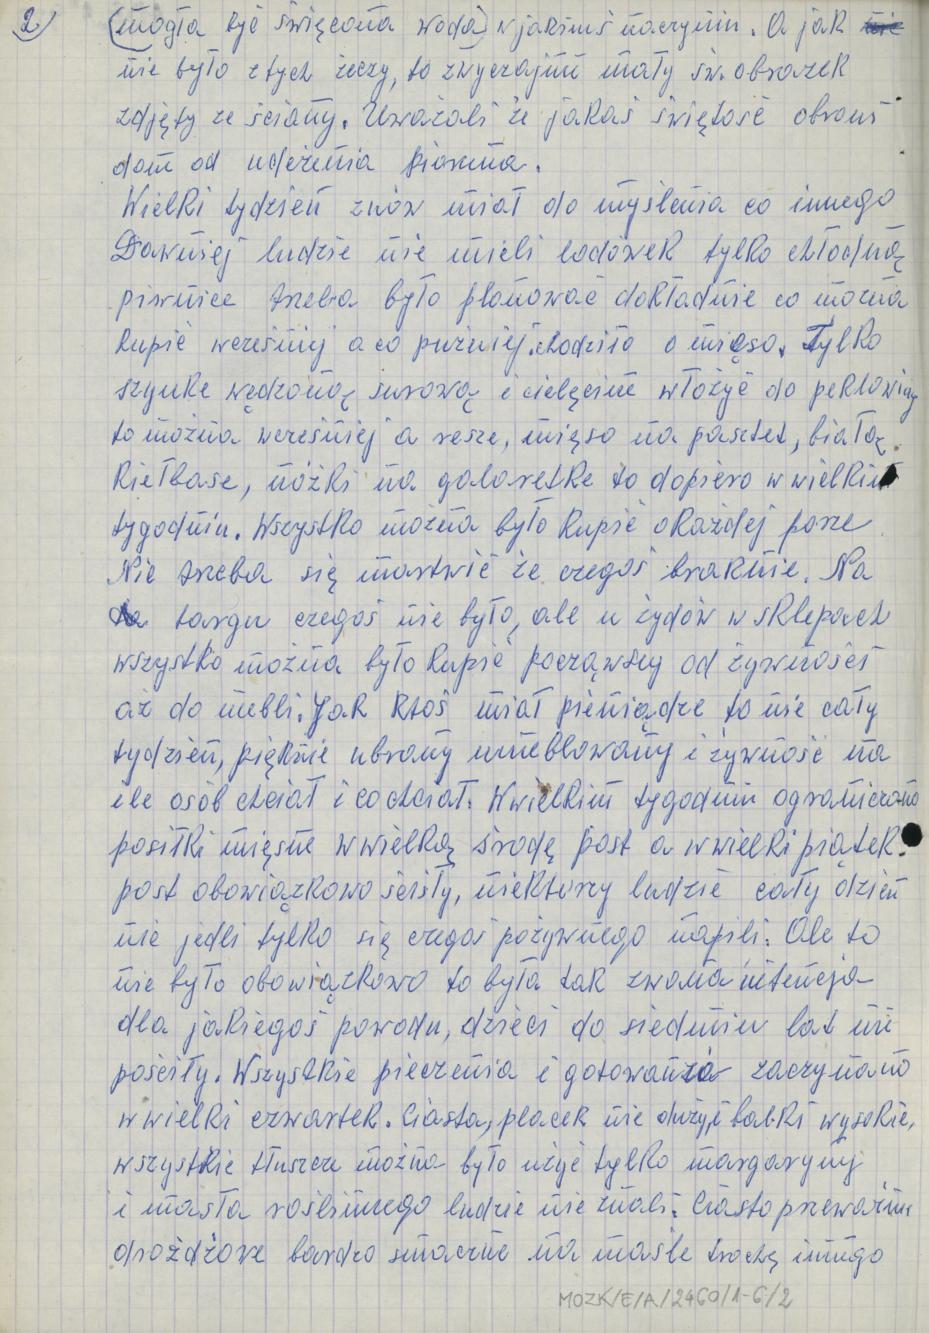 2)
(mogła być święcona woda) w jakimś naczyniu. A jak nie
nie było z tych rzeczy, to zwyczajnie mały św. obrazek
zdjęty ze ściany. Uważali że jakaś świętość obroni
dom od uderzenia pioruna.
Wielki tydzień znów miał do myślenia co innego
Dawniej ludzie nie mieli lodówek tylko chłodną
piwnice trzeba było planować dokładnie co można
kupić wcześniej a co pużniej. chodziło o mięso. Tylko
szynke wędzoną surową i cielęcine włożyć do peklowiny
to można wcześniej a resze, mięso na pasztet, białą
kiełbase, nóżki na galaretke to dopiero w wielkim
tygodniu. Wszystko można było kupić o każdej porze
Nie trzeba się martwić że czegoś braknie. Na
targu czegoś nie było, ale u żydów w sklepach
wszystko można było kupić począwszy od żywności
aż do mebli. Jak ktoś miał pieniądze to nie cały
tydzień, pięknie ubrany umeblowany i żywność na
ile osób chciał i co chciał. W wielkim tygodniu ograniczano
posiłki mięsne w wielką środę post a w wielki piątek.
post obowiązkowo ścisły, niektorzy ludzie cały dzień
nie jedli tylko się czegoś pożywnego napili. Ale to
nie było obowiązkowo to była tak zwana intencja
dla jakiegoś powodu, dzieci do siedmiu lat nie
pościły. Wszystkie pieczenia i gotowania zaczynano
w wielki czwartek. Ciasta, placek nie duży, babki wysokie,
wszystkie tłuszcze można było użyć tylko margaryny
i masła roślinnego ludzie nie znali. Ciasto przeważnie
drożdżowe bardzo smaczne na maśle trochę innego
MOZK/E/A/2460/1-6/2